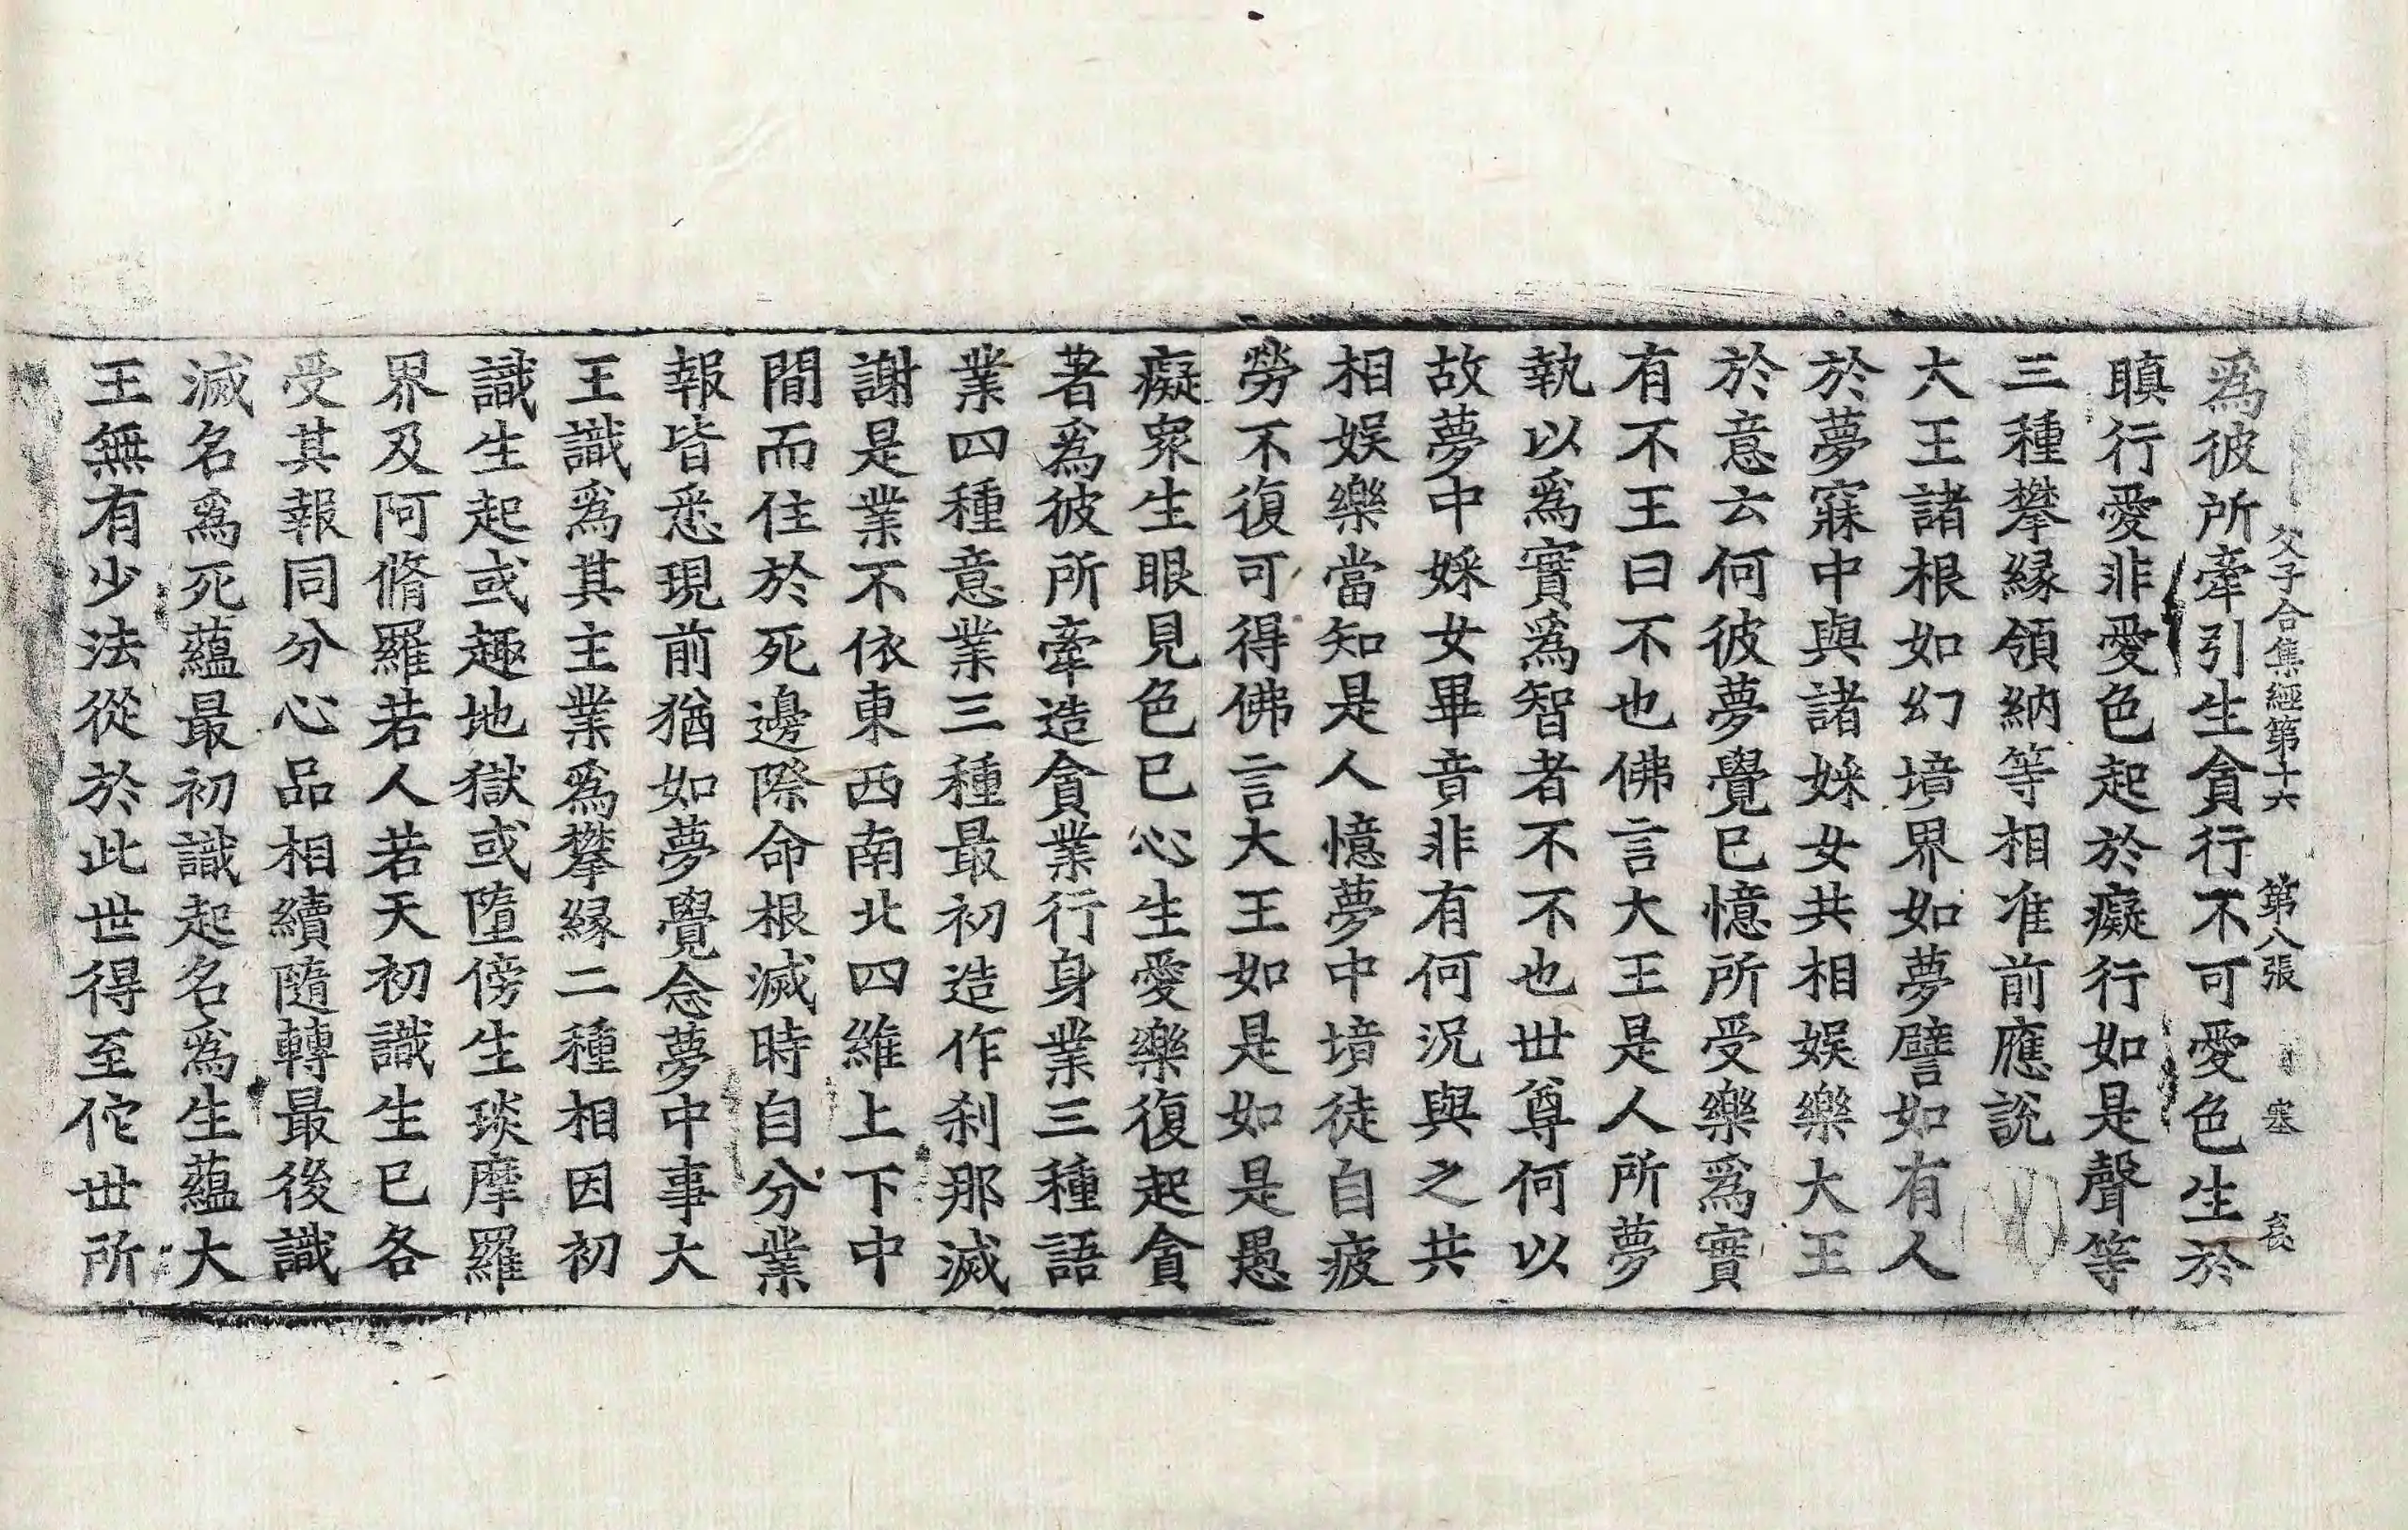 父子合集經第十六 第八張 塞
爲彼所牽引生貪行不可愛色生於
瞋行愛非愛色起於癡行如是聲等
三種攀縁領納等相准前應說
大王諸根如幻境界如夢譬如有人
於夢寐中與諸婇女共相娛樂大王
於意云何彼夢覺已憶所受樂爲實
有不王曰不也佛言大王是人所夢
執以爲實爲智者不不也世尊何以
故夢中婇女畢竟非有何況與之共
相娛樂當知是人憶夢中境徒自疲
勞不復可得佛言大王如是如是愚
癡衆生眼見色已心生愛樂復起貪
著爲彼所牽造貪業行身業三種語
業四種意業三種最初造作刹那滅
謝是業不依東西南北四維上下中
間而住於死邊際命根滅時自分業
報皆悉現前猶如夢覺念夢中事大
王識爲其主業爲攀縁二種相因初
識生起或趣地獄或墮傍生琰摩羅
界及阿脩羅若人若天初識生已各
受其報同分心品相續隨轉最後識
滅名爲死蘊最初識起名爲生蘊大
王無有少法從於此世得至佗世所